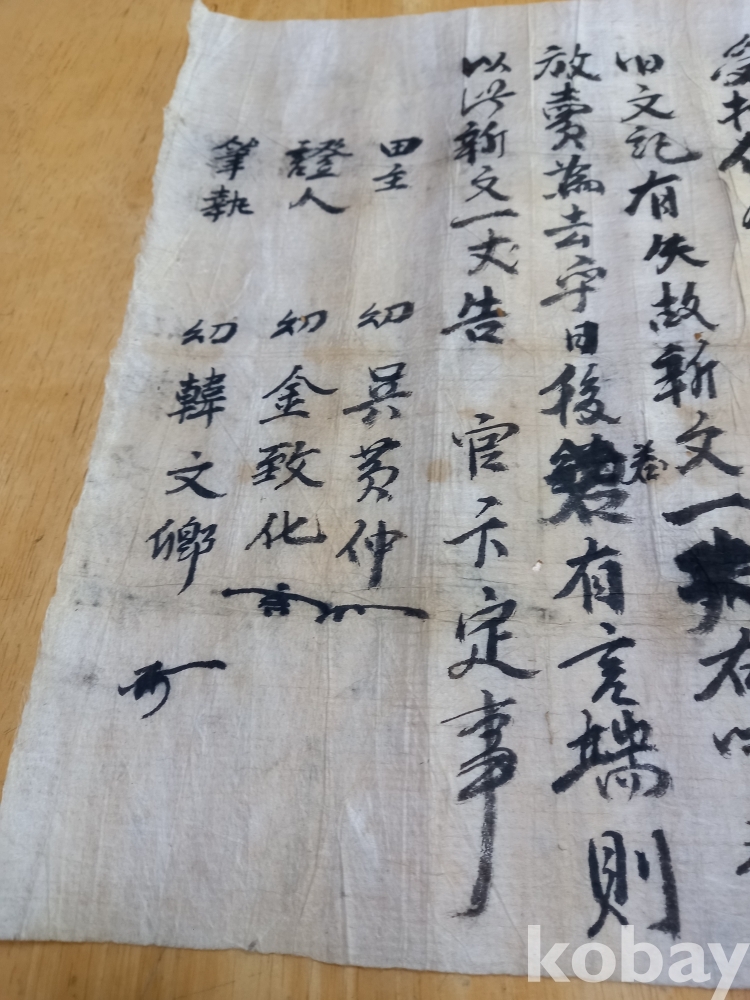 受
旧文記有失故新文一 右
放賣為去乎日後若有言端則
以此新文一丈告 官卞定事
田主 幼 吳黃仲
證人 幼 金致化
筆執 幼 韓文鄕
kobay